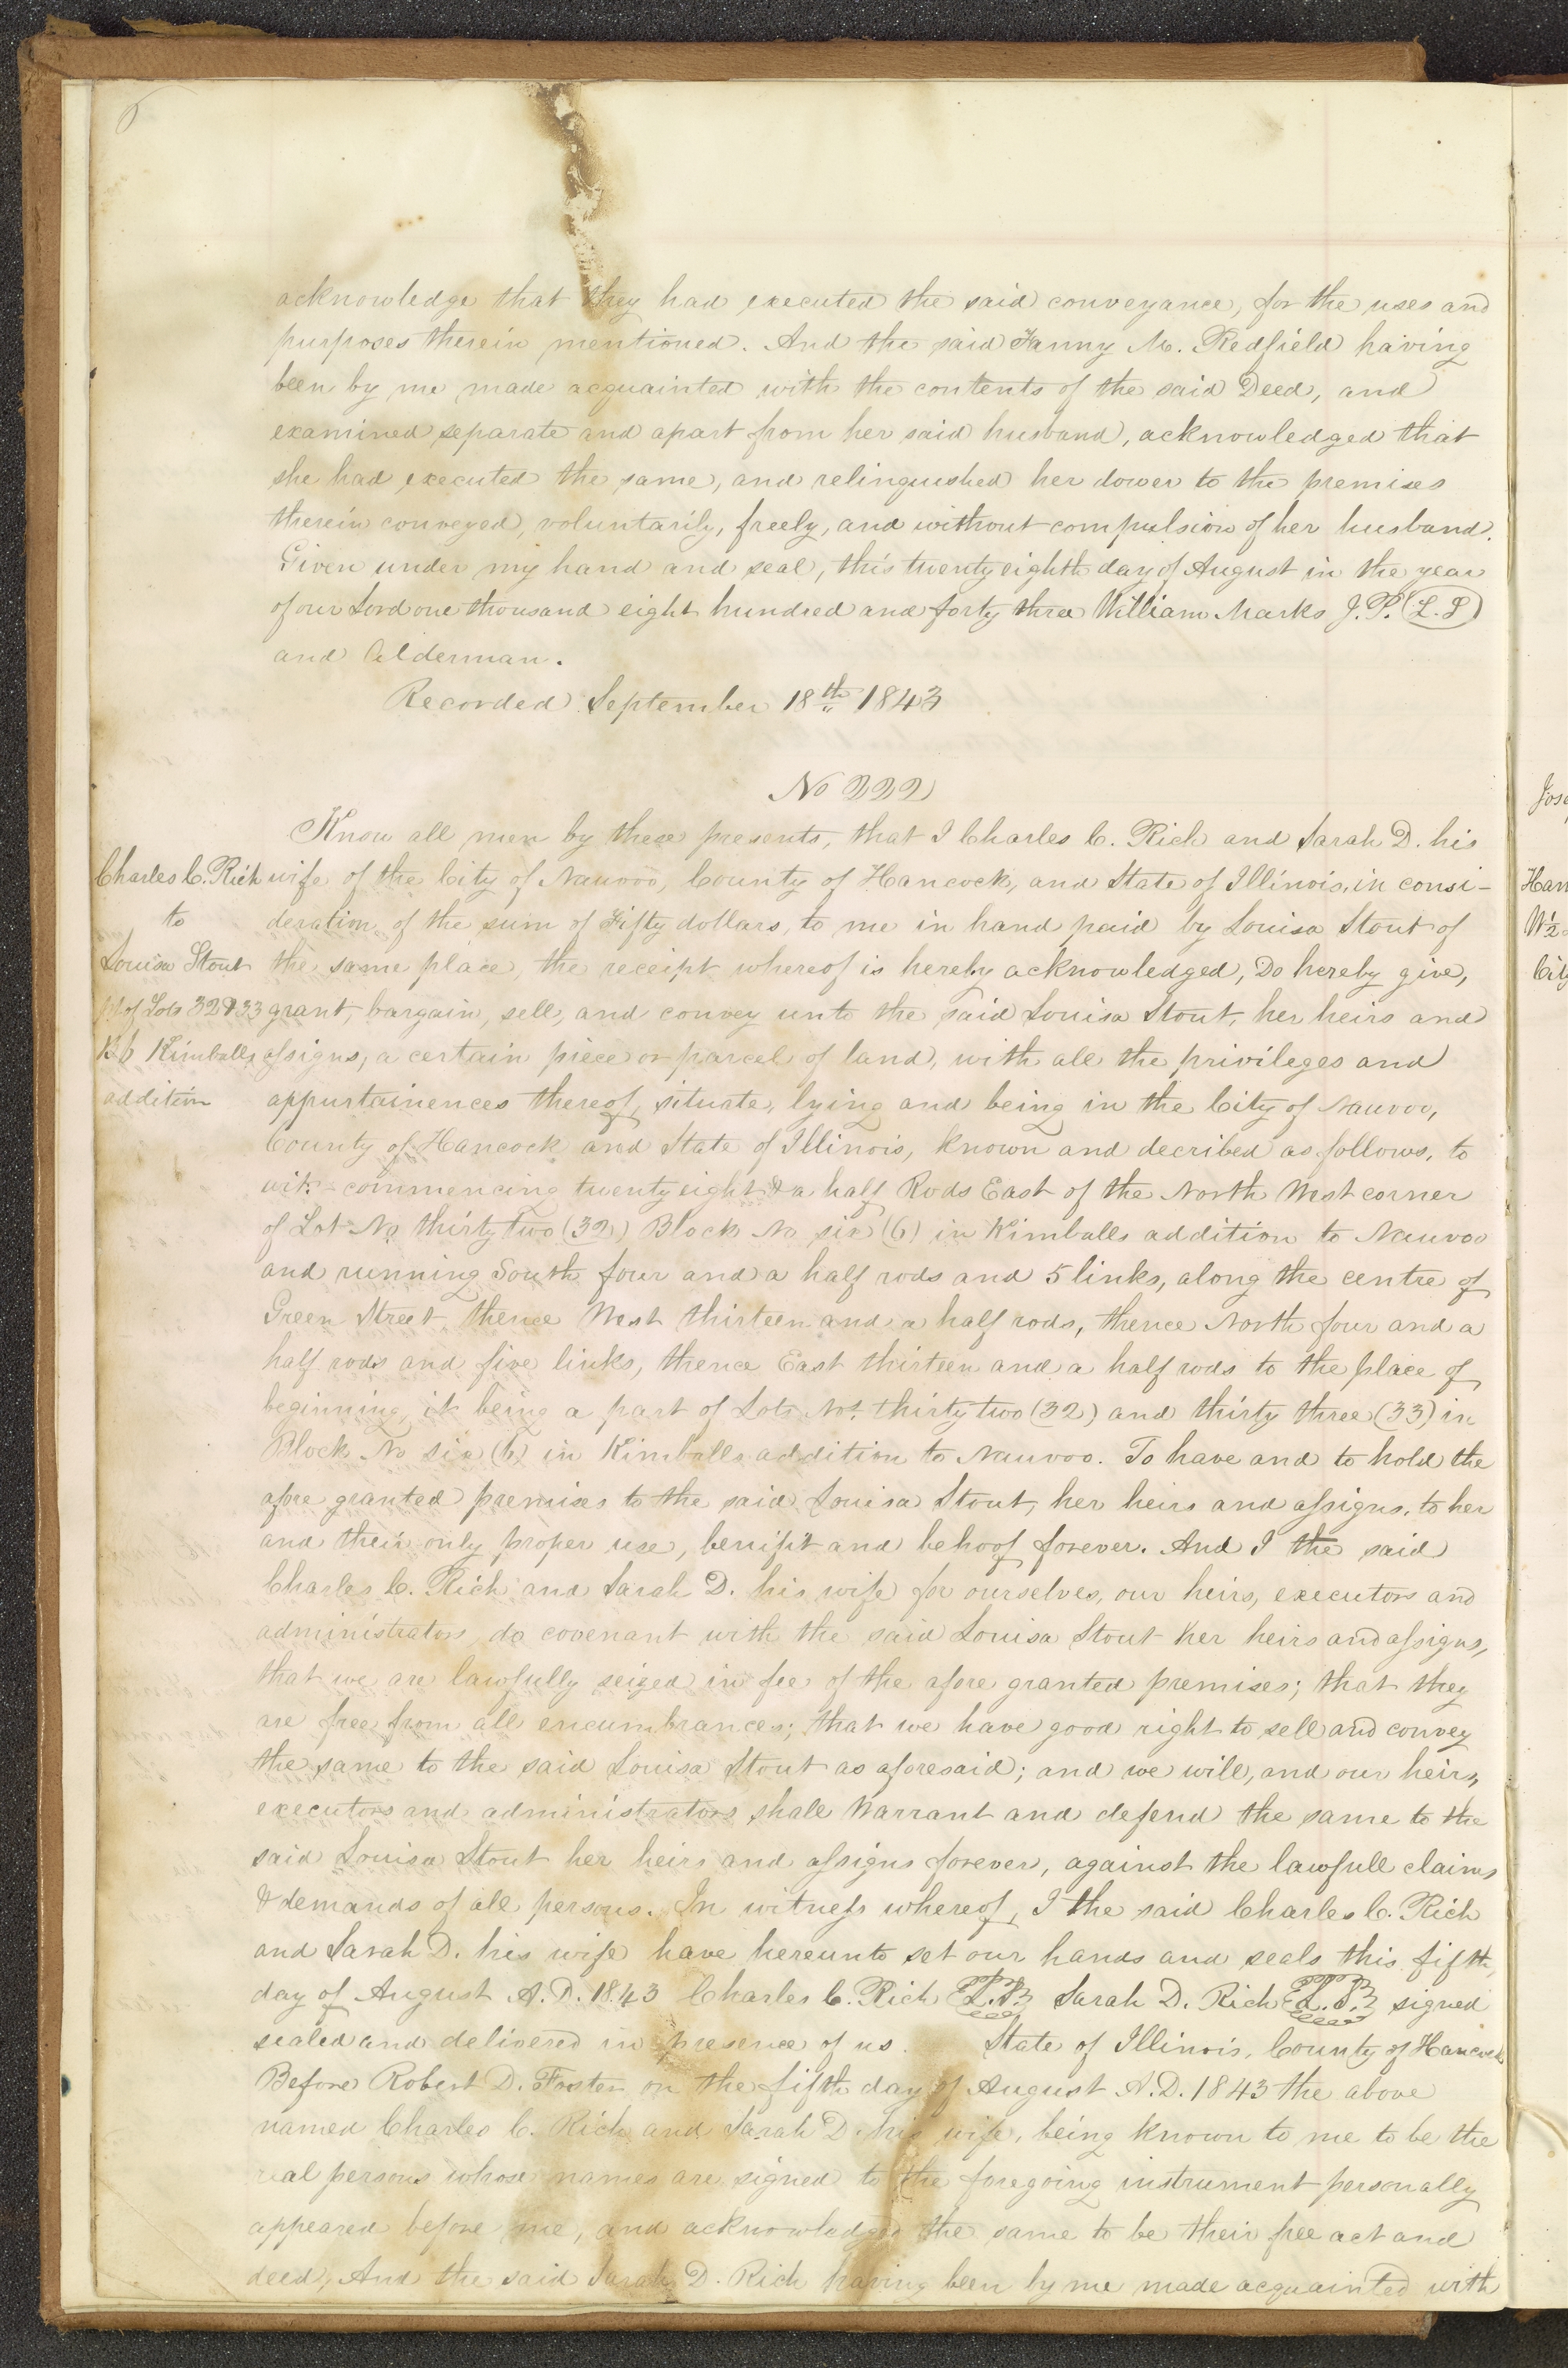 6
acknowledge that they had executed the said conveyance, for the uses and
purposes therein mentioned. And the said Fanny M. Redfield having
been by me made acquainted with the contents of the said Deed, and
examined separate and apart from her said husband, acknowledged that
she had executed the same, and relinquished her dower to the premises
therein conveyed, voluntarily, freely, and without compulsion of her husband.
Given under my hand and seal, this twenty eighth day of August in the year
of our Lord one thousand eight hundred and forty three William Marks J.P. (L.S)
and Alderman.
Recorded September 18th 1843
No 222
Know all men by these presents, that I Charles C. Rich and Sarah D. his
Charles C. Rich wife of the City of Nauvoo, County of Hancock, and State of Illinois, in consi-
to deration of the sum of Fifty dollars, to me in hand paid by Louisa Stout of
Louisa Stout the same place, the receipt whereof is hereby acknowledged, Do hereby give,
pt of Lots 32 & 33 grant, bargain, sell, and convey unto the said Louisa Stout, her heirs and
B 6 Kimballs assigns, a certain piece or parcel of land, with all the privileges and
addition appurtainences thereof, situate, lying and being in the City of Nauvoo,
County of Hancock and State of Illinois, known and decribed as follows, to
wit:- commencing twenty eight & a half Rods East of the North West corner
of Lot No thirty two (32) Block No six (6) in Kimballs addition to Nauvoo
and running South four and a half rods and 5 links, along the centre of
Green Street, thence West thirteen and a half rods, thence North four and a
half rods and five links, thence East thirteen and a half rods to the place of
beginning, it being a part of Lots Nos. thirty two (32) and thirty three (33) in
Block No six (6) in Kimballs addition to Nauvoo. To have and to hold the
afore granted premises to the said Louisa Stout, her heirs and assigns, to her
and their only proper use, benifit and behoof forever. And I the said
Charles C. Rich and Sarah D. his wife for ourselves, our heirs, executors and
administrators, do covenant with the said Louisa Stout her heirs and assigns,
that we are lawfully seized in fee of the afore granted premises; that they
are free from all encumbrances; that we have good right to sell and convey
the same to the said Louisa Stout as aforesaid; and we will, and our heirs,
executors and administrators shall Warrant and defend the same to the
said Louisa Stout her heirs and assigns forever, against the lawfull claims
& demands of all persons. In witness whereof, I the said Charles C. Rich
and Sarah D. his wife have hereunto set our hands and seals this fifth,
day of August A.D. 1843 Charles C. Rich L.S. Sarah D. Rich L.S. signed
sealed and delivered in presence of us. State of Illinois, County of Hancock
Before Robert D. Foster on the fifth day of August A.D. 1843 the above
named Charles C. Rich and Sarah D. his wife, being known to me to be the
real persons whose names are signed to the foregoing instrument personally
appeared before me, and acknowledged the same to be their free act and
deed, And the said Sarah D. Rich having been by me made acquainted with
Jose
Han
W ½
City